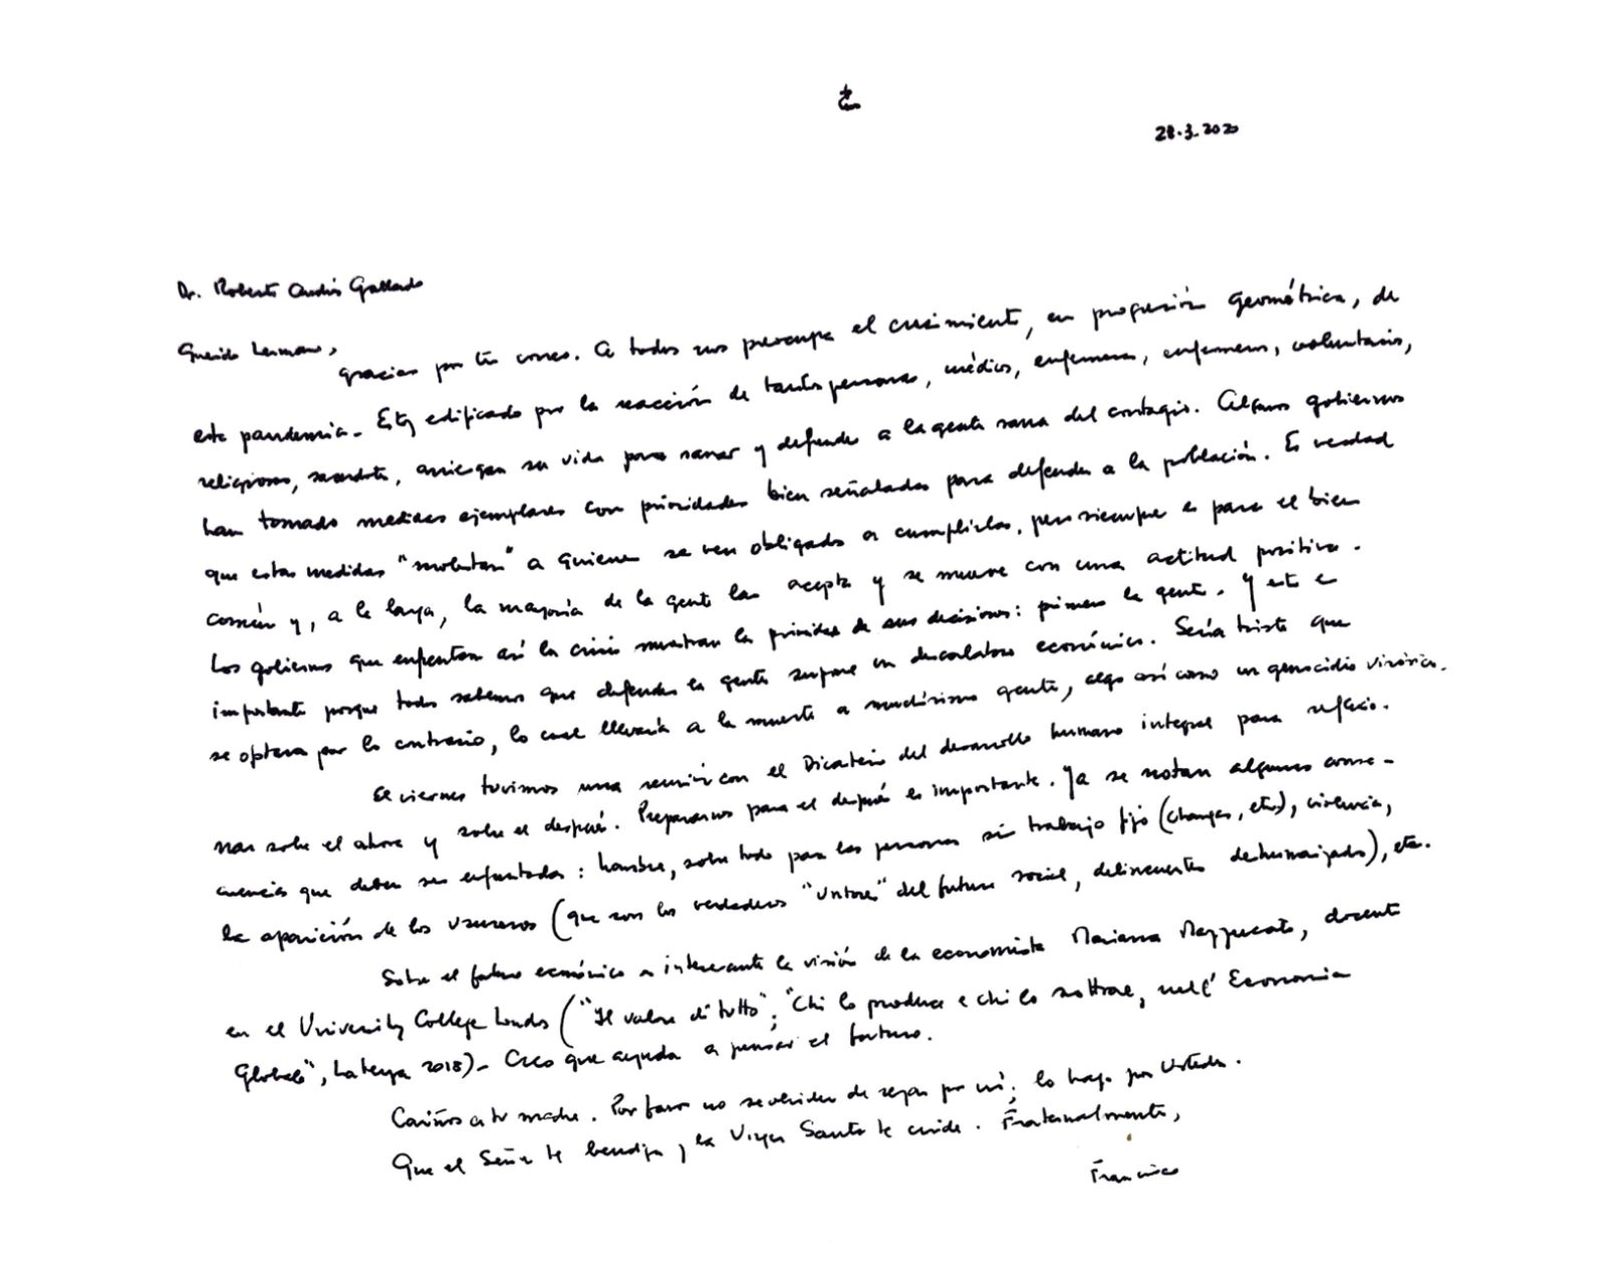 28.3.2020
Dr. Roberto Andrés Gallardo
Querido hermano,
gracias por tu correo. A todos nos preocupa el crecimiento, en progresión geométrica, de
esta pandemia. Estoy edificado por la reacción de tantas personas, médicos, enfermeras, enfermeros, voluntarios,
religiosos, sacerdotes, arriesgan su vida para sanar y defender a la gente sana del contagio. Algunos gobiernos
han tomado medidas ejemplares con prioridades bien señaladas para defender a la población. Es verdad
que estas medidas "molestan" a quienes se ven obligados a cumplirlas, pero siempre es para el bien
común y, a la larga, la mayoría de la gente las acepta y se mueve con una actitud positiva.
Los gobiernos que enfrentan así la crisis muestran la prioridad de sus decisiones: primero la gente. Y esto es
importante porque todos sabemos que defender la gente supone un descalabro económico. Sería triste que
se optara por lo contrario, lo cual llevaría a la muerte a muchísima gente, algo así como un genocidio virósico.
El viernes tuvimos una reunión con el Dicasterio del desarrollo humano integral para reflexio-
nar sobre el ahora y sobre el después. Prepararnos para el después es importante. Ya se notan algunas conse-
cuencias que deben ser enfrentadas: hambre, sobre todo para las personas sin trabajo fijo (changas, etc), violencia,
la aparición de los usureros (que son los verdaderos "untore" del futuro social, delincuentes deshumanizados), etc.
Sobre el futuro económico es interesante la visión de la economista Mariana Mazzucato, docente
en el University College London ("Il valore di tutto"; "Chi lo produce e chi lo sottrae, nell' Economia
Globale", Laterza 2018)- Creo que ayuda a pensar el futuro.
Cariños a tu madre. Por favor no se olviden de rezar por mí; lo hago por Ustedes.
Que el Señor te bendiga y la Virgen Santa te cuide. Fraternalmente,
Francisco